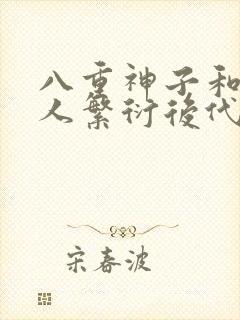 八重神子和
人繁衍後代
宋春波